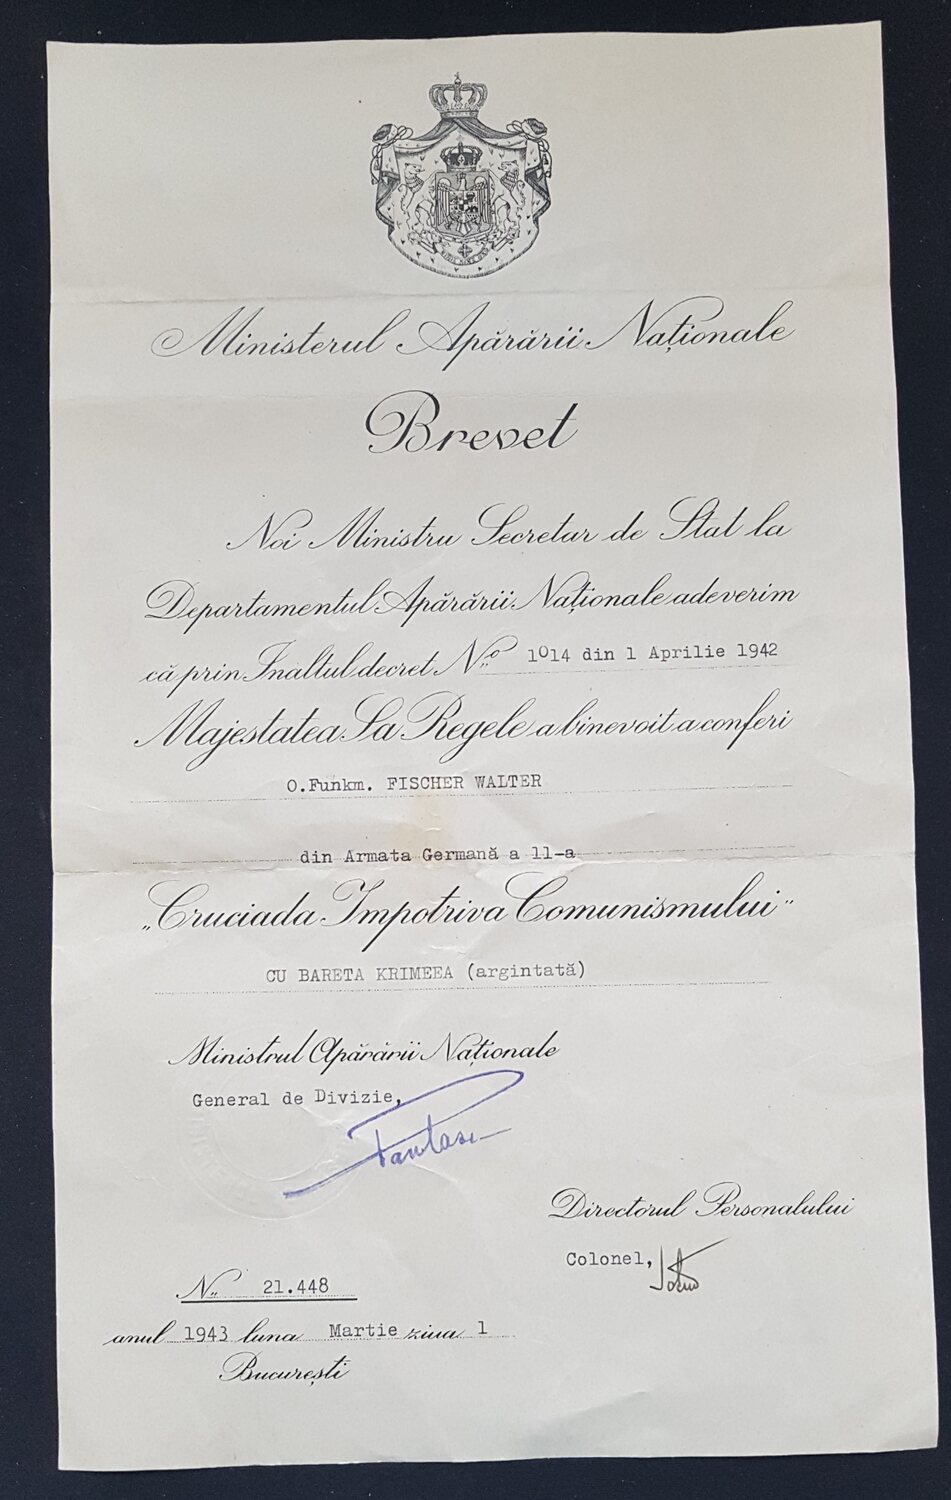 Ministerul Apărării Naționale
Brevet
Noi Ministru Secretar de Stat la
Departamentul Apărării Naționale adeverim
că prin Înaltul decret No 1014 din 1 Aprilie 1942
Majestatea Sa Regele a binevoit a conferi
O.Funkm. FISCHER WALTER
din Armata Germană a 11-a
„Cruciada Împotriva Comunismului"
CU BARETA KRIMEEA (argintată)
Ministrul Apărării Naționale
General de Divizie,
Pantazi
Directorul Personalului
Colonel,
No 21.448
anul 1943 luna Martie ziua 1
București